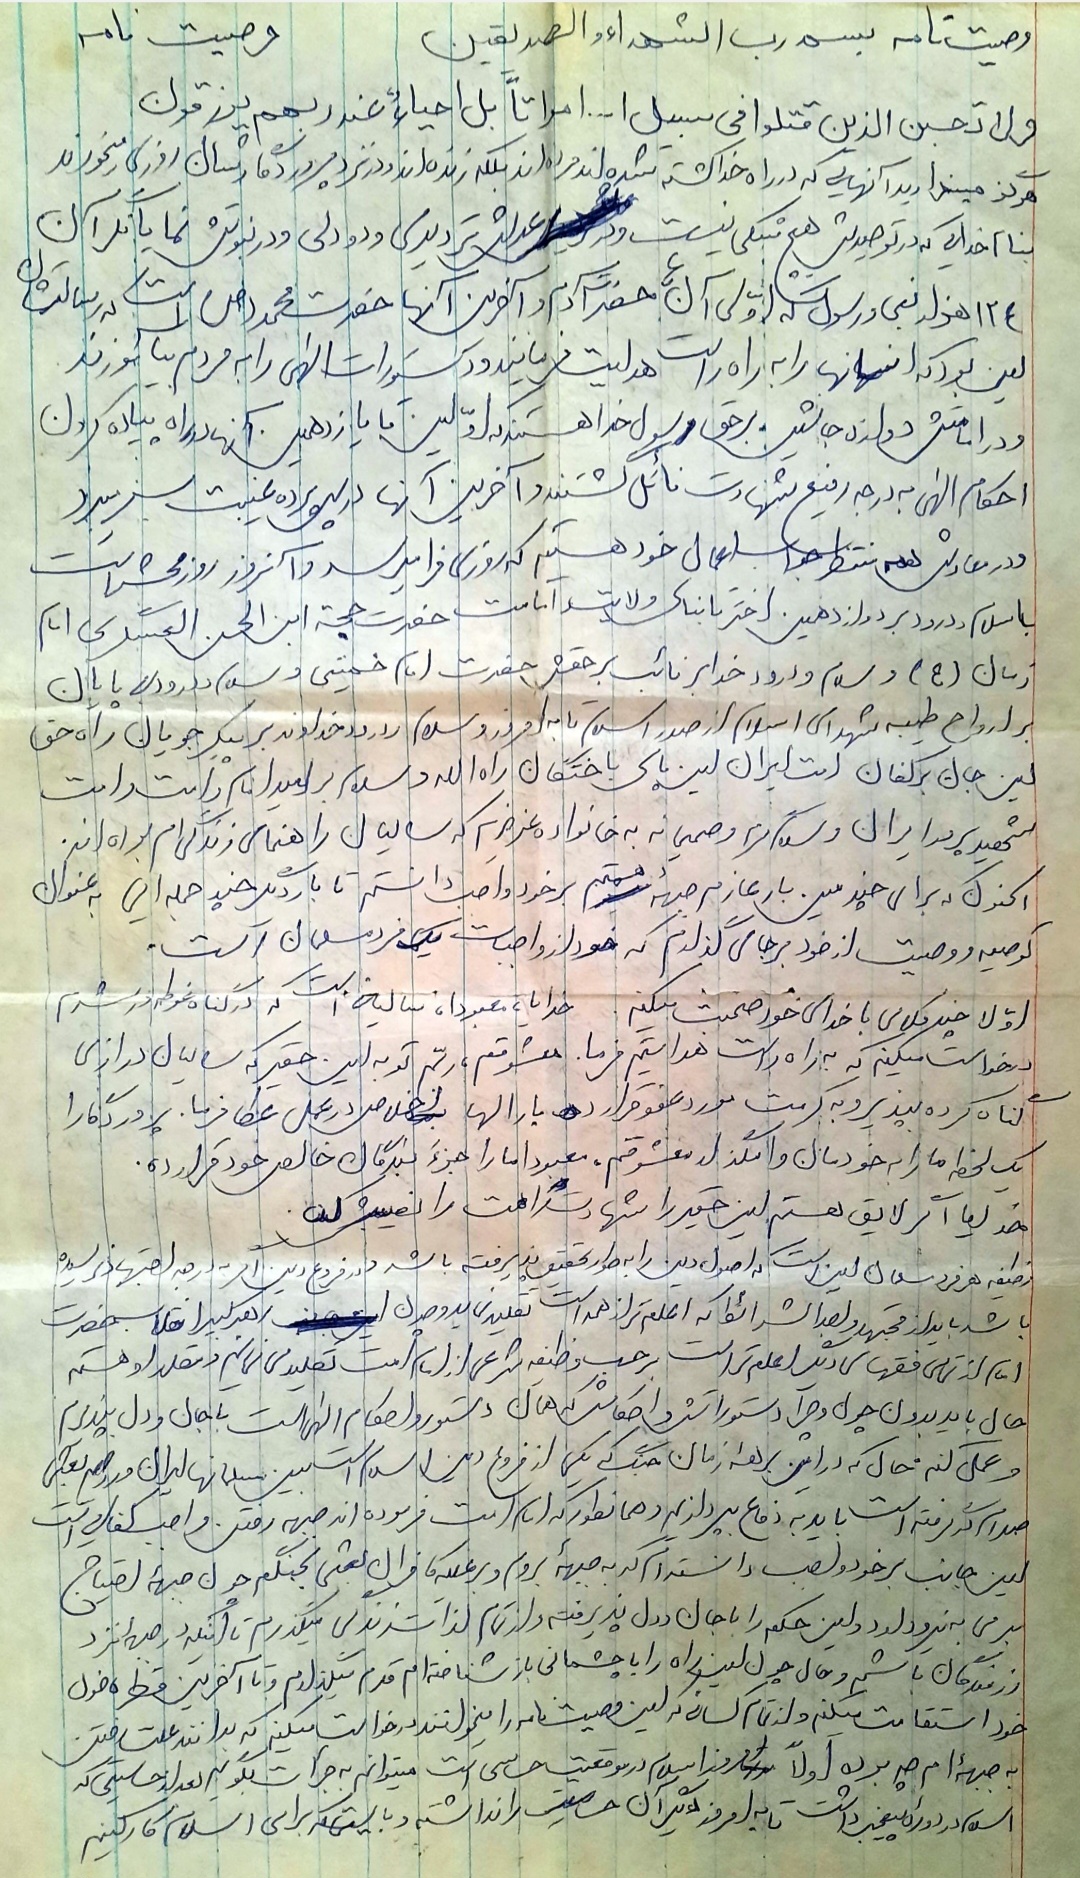 وصیت نامه بسم رب الشهداء و الصدیقین وصیت نامه
ولا تحسبن الذین قتلوا فی سبیل ا... امواتاً بل احیاءٌ عند ربهم یرزقون
هرگز مپندارید آنهایی که در راه خدا کشته شده اند مرده اند بلکه زنده اند و در نزد پروردگارشان روزی میخورند
بنام خدایی که در توحیدش هیچ شکی نیست و در عدلش تردیدی و دودلی و در نبوتش نمایانگر آن
۱۲۴ هزار نبی و رسول که اوّلی آن حضرت آدم و آخرین آنها حضرت محمد (ص) است که رسالتشان
این بود که انسانها را به راه راست هدایت فرمایند و دستورات الهی را به مردم بیاموزند
و در امامتش دوازده جانشین برحق رسول خدا هستند که اوّلین تا یازدهمین آنها در راه پیاده کردن
احکام الهی به درجه رفیع شهادت نائل گشتند و آخرین آنها در پس پرده غیبت بسر میبرد
و در معادش همه منتظر جواب اعمال خود هستیم که روزی فرا میرسد و آنروز روز محشر است
با سلام و درود بر دوازدهمین اختر تابناک ولایت و امامت حضرت حجة ابن الحسن العسگری امام
زمان (ع) و سلام و درود خدا بر نائب برحقش حضرت امام خمینی و سلام و درود بی پایان
بر ارواح طیبه شهدای اسلام از صدر اسلام تا به امروز و سلام و درود خداوند بر پیکر جویان راه حق
این جان برکفان امت ایران این پاک باختگان راه الله و سلام بر امید امام و امت و امت
شهید پرور ایران و سلام گرم و صمیمانه به خانواده عزیزم که سالیان راهنمای زندگی ام بوده اند.
اکنون که برای چندمین بار عازم جبهه هستم بر خود واجب دانستم تا بار دگر چند جمله ایی به عنوان
توصیه و وصیت از خود برجای گذارم که خود از واجبات یک فرد مسلمان است.
اوّلا چند کلامی با خدای خود صحبت میکنم خدایا، معبودا، سالیانی است که در گناه غوطه ور شدم
درخواست میکنم که به راه راست هدایتم فرما. معشوقم، توبه این حقیر که سالیان درازی
گناه کرده بپذیر و به کرمت مورد عفو قرار ده بارالها اخلاص در عمل عطا فرما. پروردگارا
یک لحظه ما را به خودمان وامگذار معشوقم، معبودا ما را جزء بندگان خالص خود قرار ده.
خدایا اگر لایق هستم این حقیر را شهادت در راهت را نصیبش کن.
وظیفه هر فرد مسلمان این است که اصول دین را به طور تحقیق پذیرفته باشد و در فروع دین اگر به درجه اجتهاد نرسیده
باشد باید از مجتهد جامع الشرائط که اعلم تر از همه است تقلید نماید و چون رهبر کبیر انقلاب حضرت
امام از تمامی فقهای دیگر اعلم تر است برحسب وظیفه شرعی از امام امت تقلید می نمایم و مقلد او هستم
حال باید بدون چون و چرا دستوراتش و احکامش که همان دستور و احکام الهی است با جان و دل بپذیرم
و عمل کنم حال که در این برهه از زمان جنگ که یکی از فروع دین اسلام است بین مسلمانهای ایران و رژیم بعثی
صدام که گرفته است باید به دفاع بپردازیم و همانطور که امام امت فرموده اند جبهه رفتن واجب کفائی است
این جانب بر خود واجب دانسته ام که به جبهه بروم و بر علیه کافران بعثی بجنگم چون جبهه احتیاج
مبرمی به نیرو دارد و این حکم را با جان و دل پذیرفته و از تمام لذات زندگی میگذرم تا اینکه در جبهه نزد
رزمندگان باشم و حال چون این راه را با چشمانی باز شناخته ام قدم میگذارم و تا آخرین قطره خون
خود استقامت میکنم و از تمام کسانی که این وصیتنامه را میخوانند درخواست میکنم که بدانند علت رفتن
به جبهه ام چه بوده اولاً امروز اسلام در موقعیت حساسی است میتوانم به جرأت بگویم بعد از حساسیتی که
اسلام در دوره پیغمبر داشت تا به امروز دیگر آن حساسیت را نداشته و بایستی که برای اسلام کار کنیم